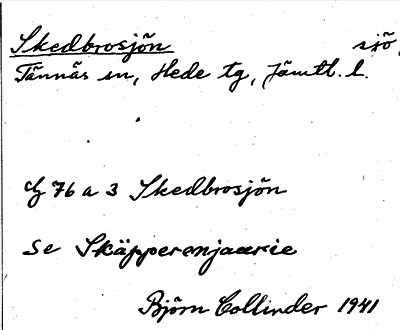 Skedbrosjön sjö,
Tännäs sn, Hede tg, Jämtl. l.
76 a 3 Skedbrosjön
Se Skäpperenjaavrie
Björn Collinder 1941